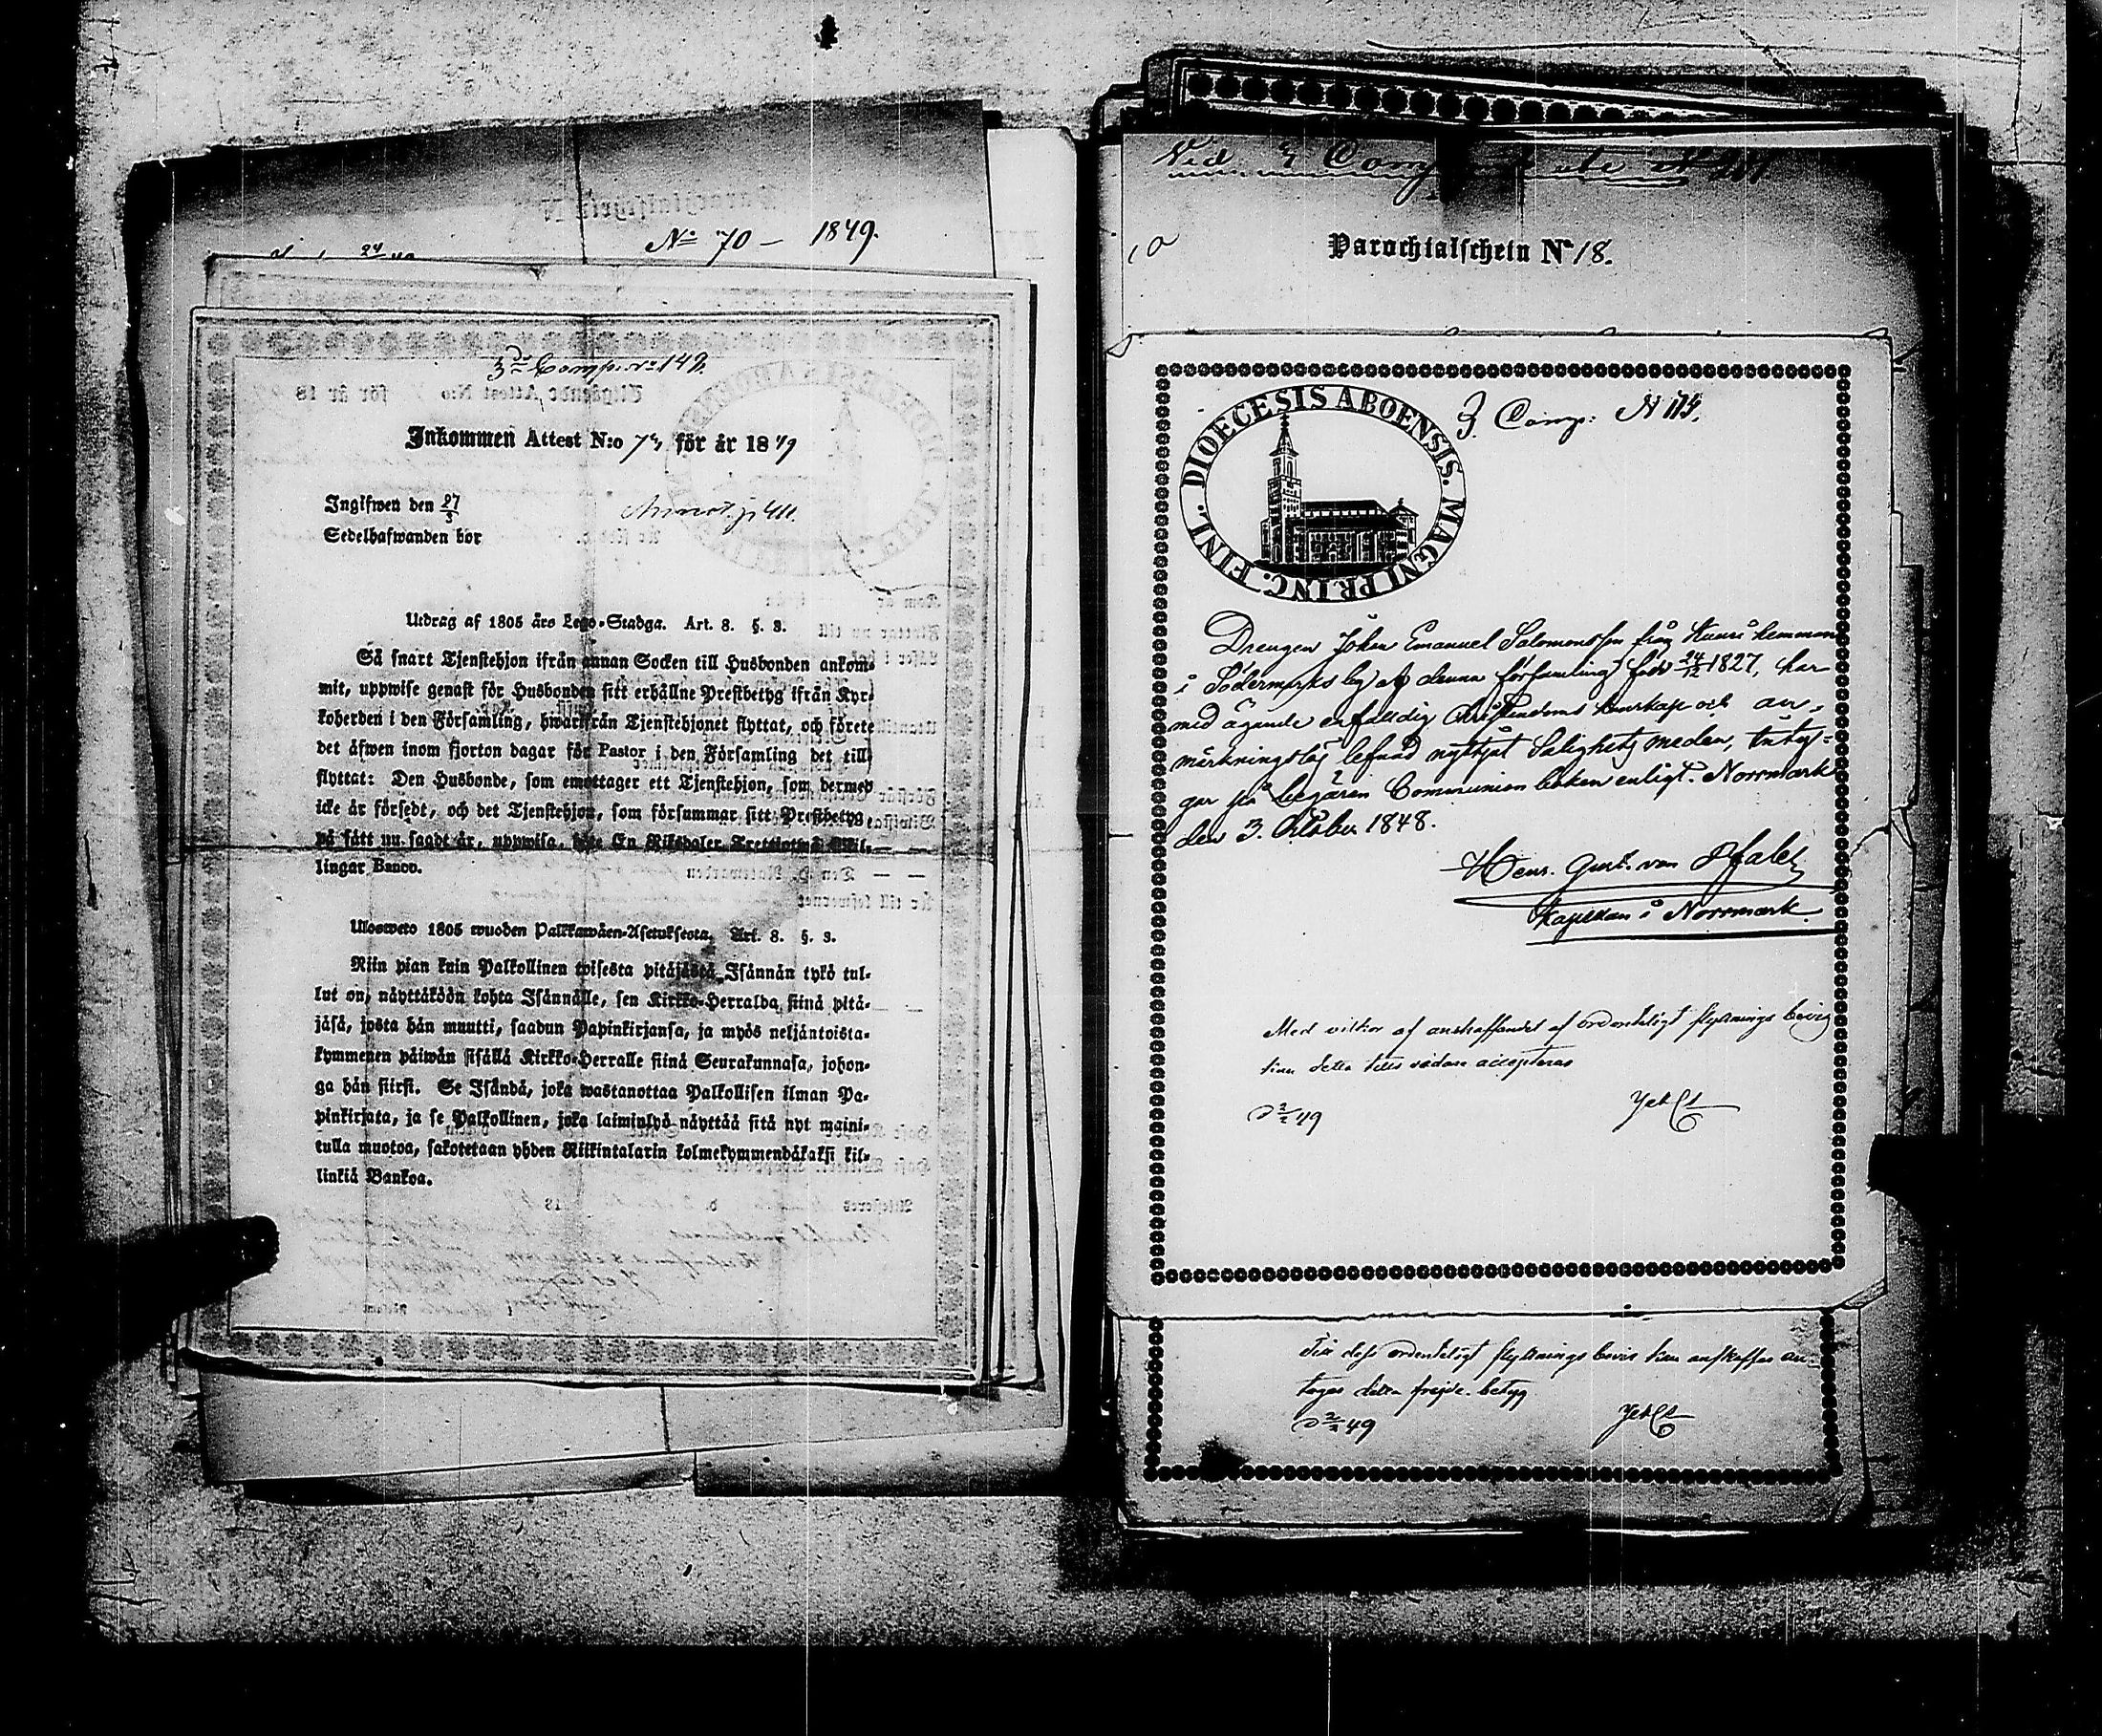 No 70 – 1849.
3de Comp. No 149.
Inkommen Attest N:o 73 för år 1849
Ingifwen den 27/3
Annot. p. 411.
Sedelhafwanden bör
Utdrag af 1805 års Lego-Stadga. Art. 8. §. 3.
Så snart Tjenstehjon ifrån annan Socken till Husbonden ankom-
mit, uppwise genast för Husbonden sitt erhållne Prestbetyg ifrån Kyr-
koherden i den Församling, hwarifrån Tjenstehjonet flyttat, och förete
det äfwen inom fjorton dagar för Pastor i den Församling det till-
flyttat: Den Husbonde, som emottager ett Tjenstehjon, som dermed
icke är försedt, och det Tjenstehjon, som försummar sitt Prestbetyg,
på sätt nu sagdt är, uppwisa, böte En Riksdaler Trettiotwå Skil-
lingar Banco.
Ulosweto 1805 wuoden Palkkawäen-Asetuksesta. Art. 8. §. 3.
Niin pian kuin Palkollinen toisesta pitäjästä Isännän tykö tul-
lut on, näyttäköön kohta Isännälle, sen Kirkko-Herralda siinä pitä-
jäsä, josta hän muutti, saadun Papinkirjansa, ja myös neljäntoista-
kymmenen päiwän sisällä Kirkko-Herralle siinä Seurakunnasa, johon-
ga hän siirsi. Se Isändä, joka wastanottaa Palkollisen ilman Pa-
pinkirjata, ja se Palkollinen, joka laiminlyö näyttää sitä nyt maini-
tulla muotoa, sakotetaan yhden Riikintalarin kolmekymmendäkaksi kil-
linkiä Bankoa.
Vid 3 Comp
Parochialschein No 18.
DIOECESIS ABOENSIS. MAGNI PRINC. FINL.
3. Comp: N 175.
Drengen Johan Emanuel Salomonsson från hemman
i Södermarks by af denna församling född 24/12 1827, har
med ägande enfaldig Christendoms kunskap och an-
märkningslös lefnad nyttjat Salighets medlen, betyg-
gar på begäran Communion boken enligt. Norrmark
den 3. October 1848.
Henr. Gust. von Pfaler
Kapellan i Norrmark.
Med vilkor af anskaffandet af ordenteligt flyttnings bevis
kan detta tills vidare accepteras
d 2/2 49
Till dess ordenteligt flyttnings bevis kan anskaffas an-
tages detta frejde-betyg
d 2/2 49